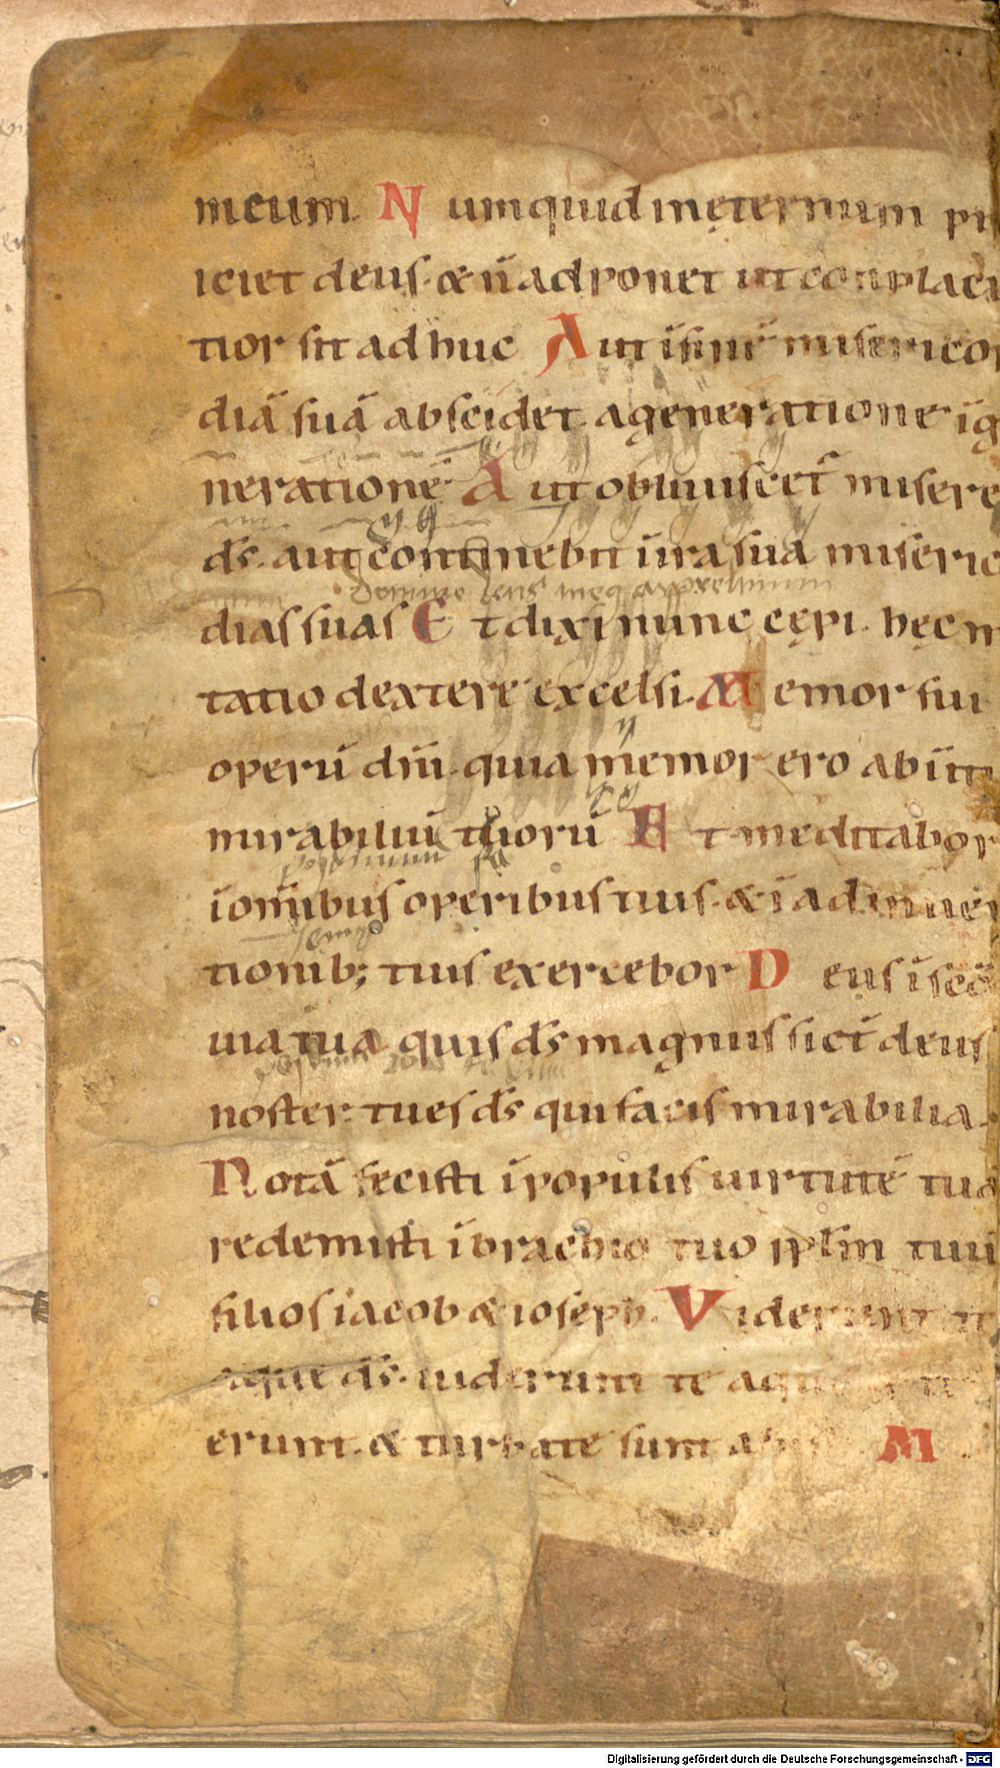 meum. Numquid inęternum pi
iciet deus. & n̄ adponet ut conplaci
tior sit adhuc Aut ī finē misericor
diā suā abscidet ageneratione īg
nerationē Aut obliuiscet᷑ misere
dś. aut continebit ī ira sua miseric
domine
dias suas Et dixi nunc cępi. hęc m
tatio dextere excelsi. Memor fui
operū dn̄i. quia memor ero ab īiti
mirabiliū tuorū Et meditabor
ī om̄ibus operibus tuis. & ī adinuēi
tionib; tuis exercebor Deus ī scō
uia tua quis dś magnus sic̄ deus
noster. tu es dś qui facis mirabilia.
Notā fecisti ī populis uirtutē tua
redemisti ī brachio tuo pplm̄ tuū
filios iacob & ioseph. Viderunt te
aque dś. uiderunt te aque
erunt. & turbate sunt M
Digitalisierung gefördert durch die Deutsche Forschungsgemeinschaft - DFG